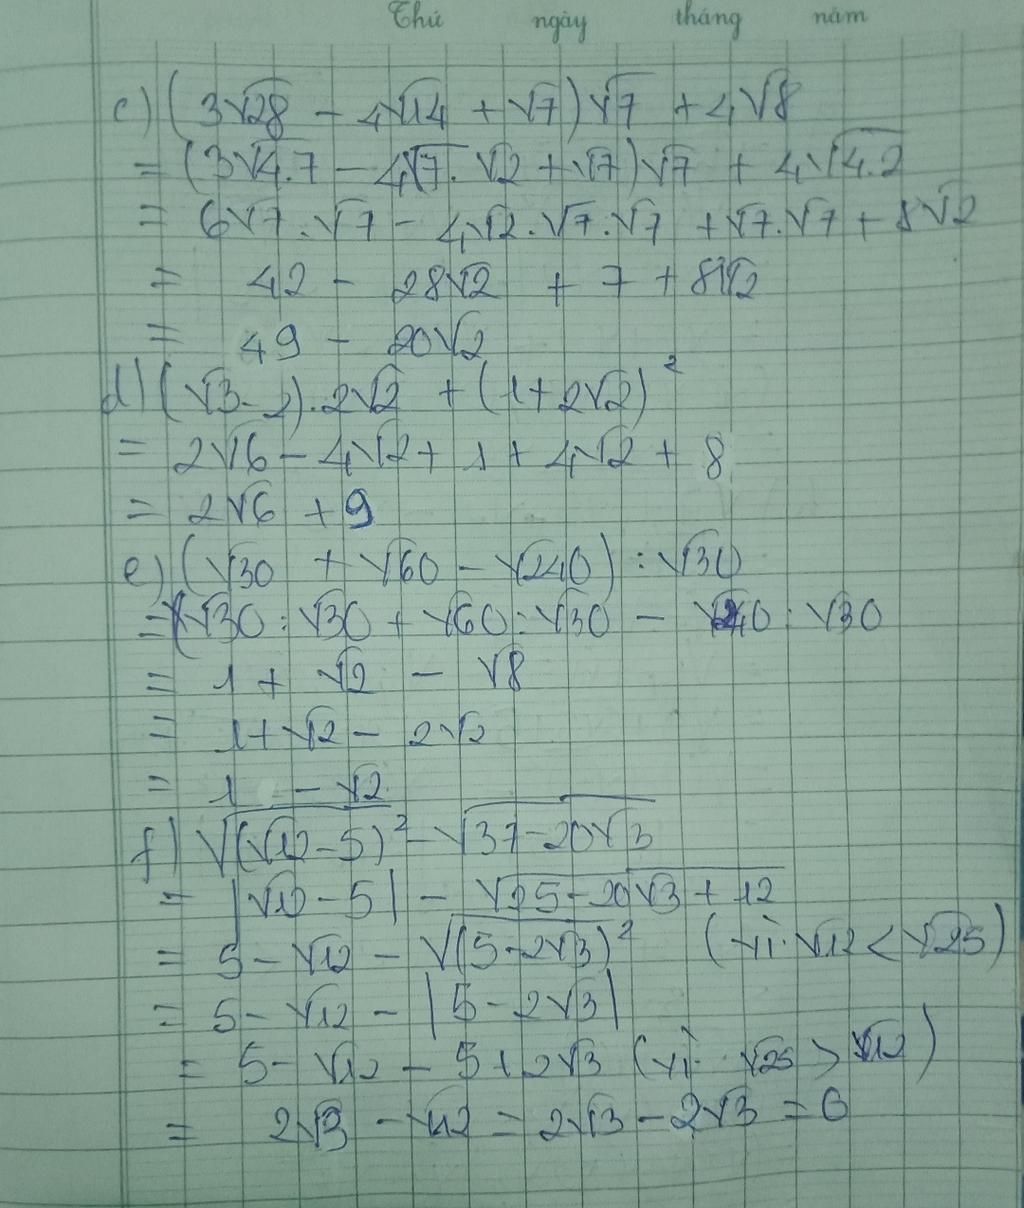 Thứ ngày tháng năm
c) (3√28 - 4√14 + √7)√7 + 4√8
= (3√4.7 - 4√7.√2 + √7)√7 + 4√4.2
= 6√7.√7 - 4√2.√7.√7 + √7.√7 + 8√2
= 42 - 28√2 + 7 + 8√2
= 49 - 20√2
d) (√3-2).2√2 + (1+2√2)²
= 2√6 - 4√2 + 1 + 4√2 + 8
= 2√6 + 9
e) (√30 + √60 - √240) : √30
= √30 : √30 + √60 : √30 - √240 : √30
= 1 + √2 - √8
= 1 + √2 - 2√2
= 1 - √2
f) √(√12-5)² - √37-20√3
= |√12 - 5| - √25-20√3+12
= 5 - √12 - √(5-2√3)² (vì √12 < √25)
= 5 - √12 - |5 - 2√3|
= 5 - √12 - 5 + 2√3 (vì √25 > √12)
= 2√3 - √12 = 2√3 - 2√3 = 0